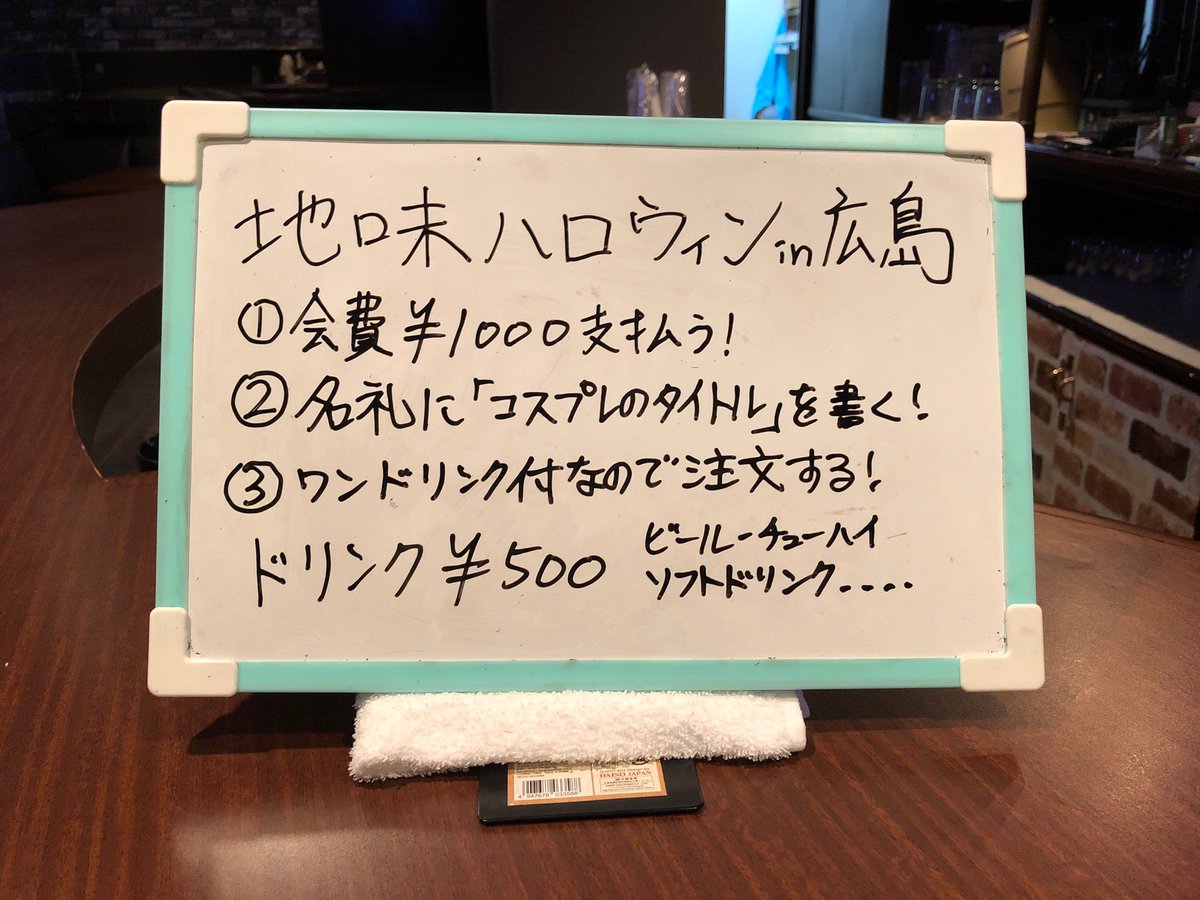 地味ハロウィンin広島
①会費¥1000支払う!
②名札に「コスプレのタイトル」を書く!
③ワンドリンク付なので注文する!
ドリンク¥500
ビールーチューハイ
ソフトドリンク....
DAISO JAPAN
4 947678 033568